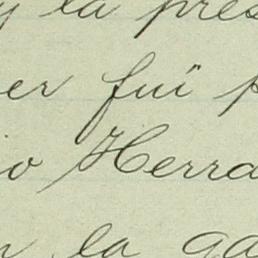 y la pres
er fuí p
io Herra
n la ga